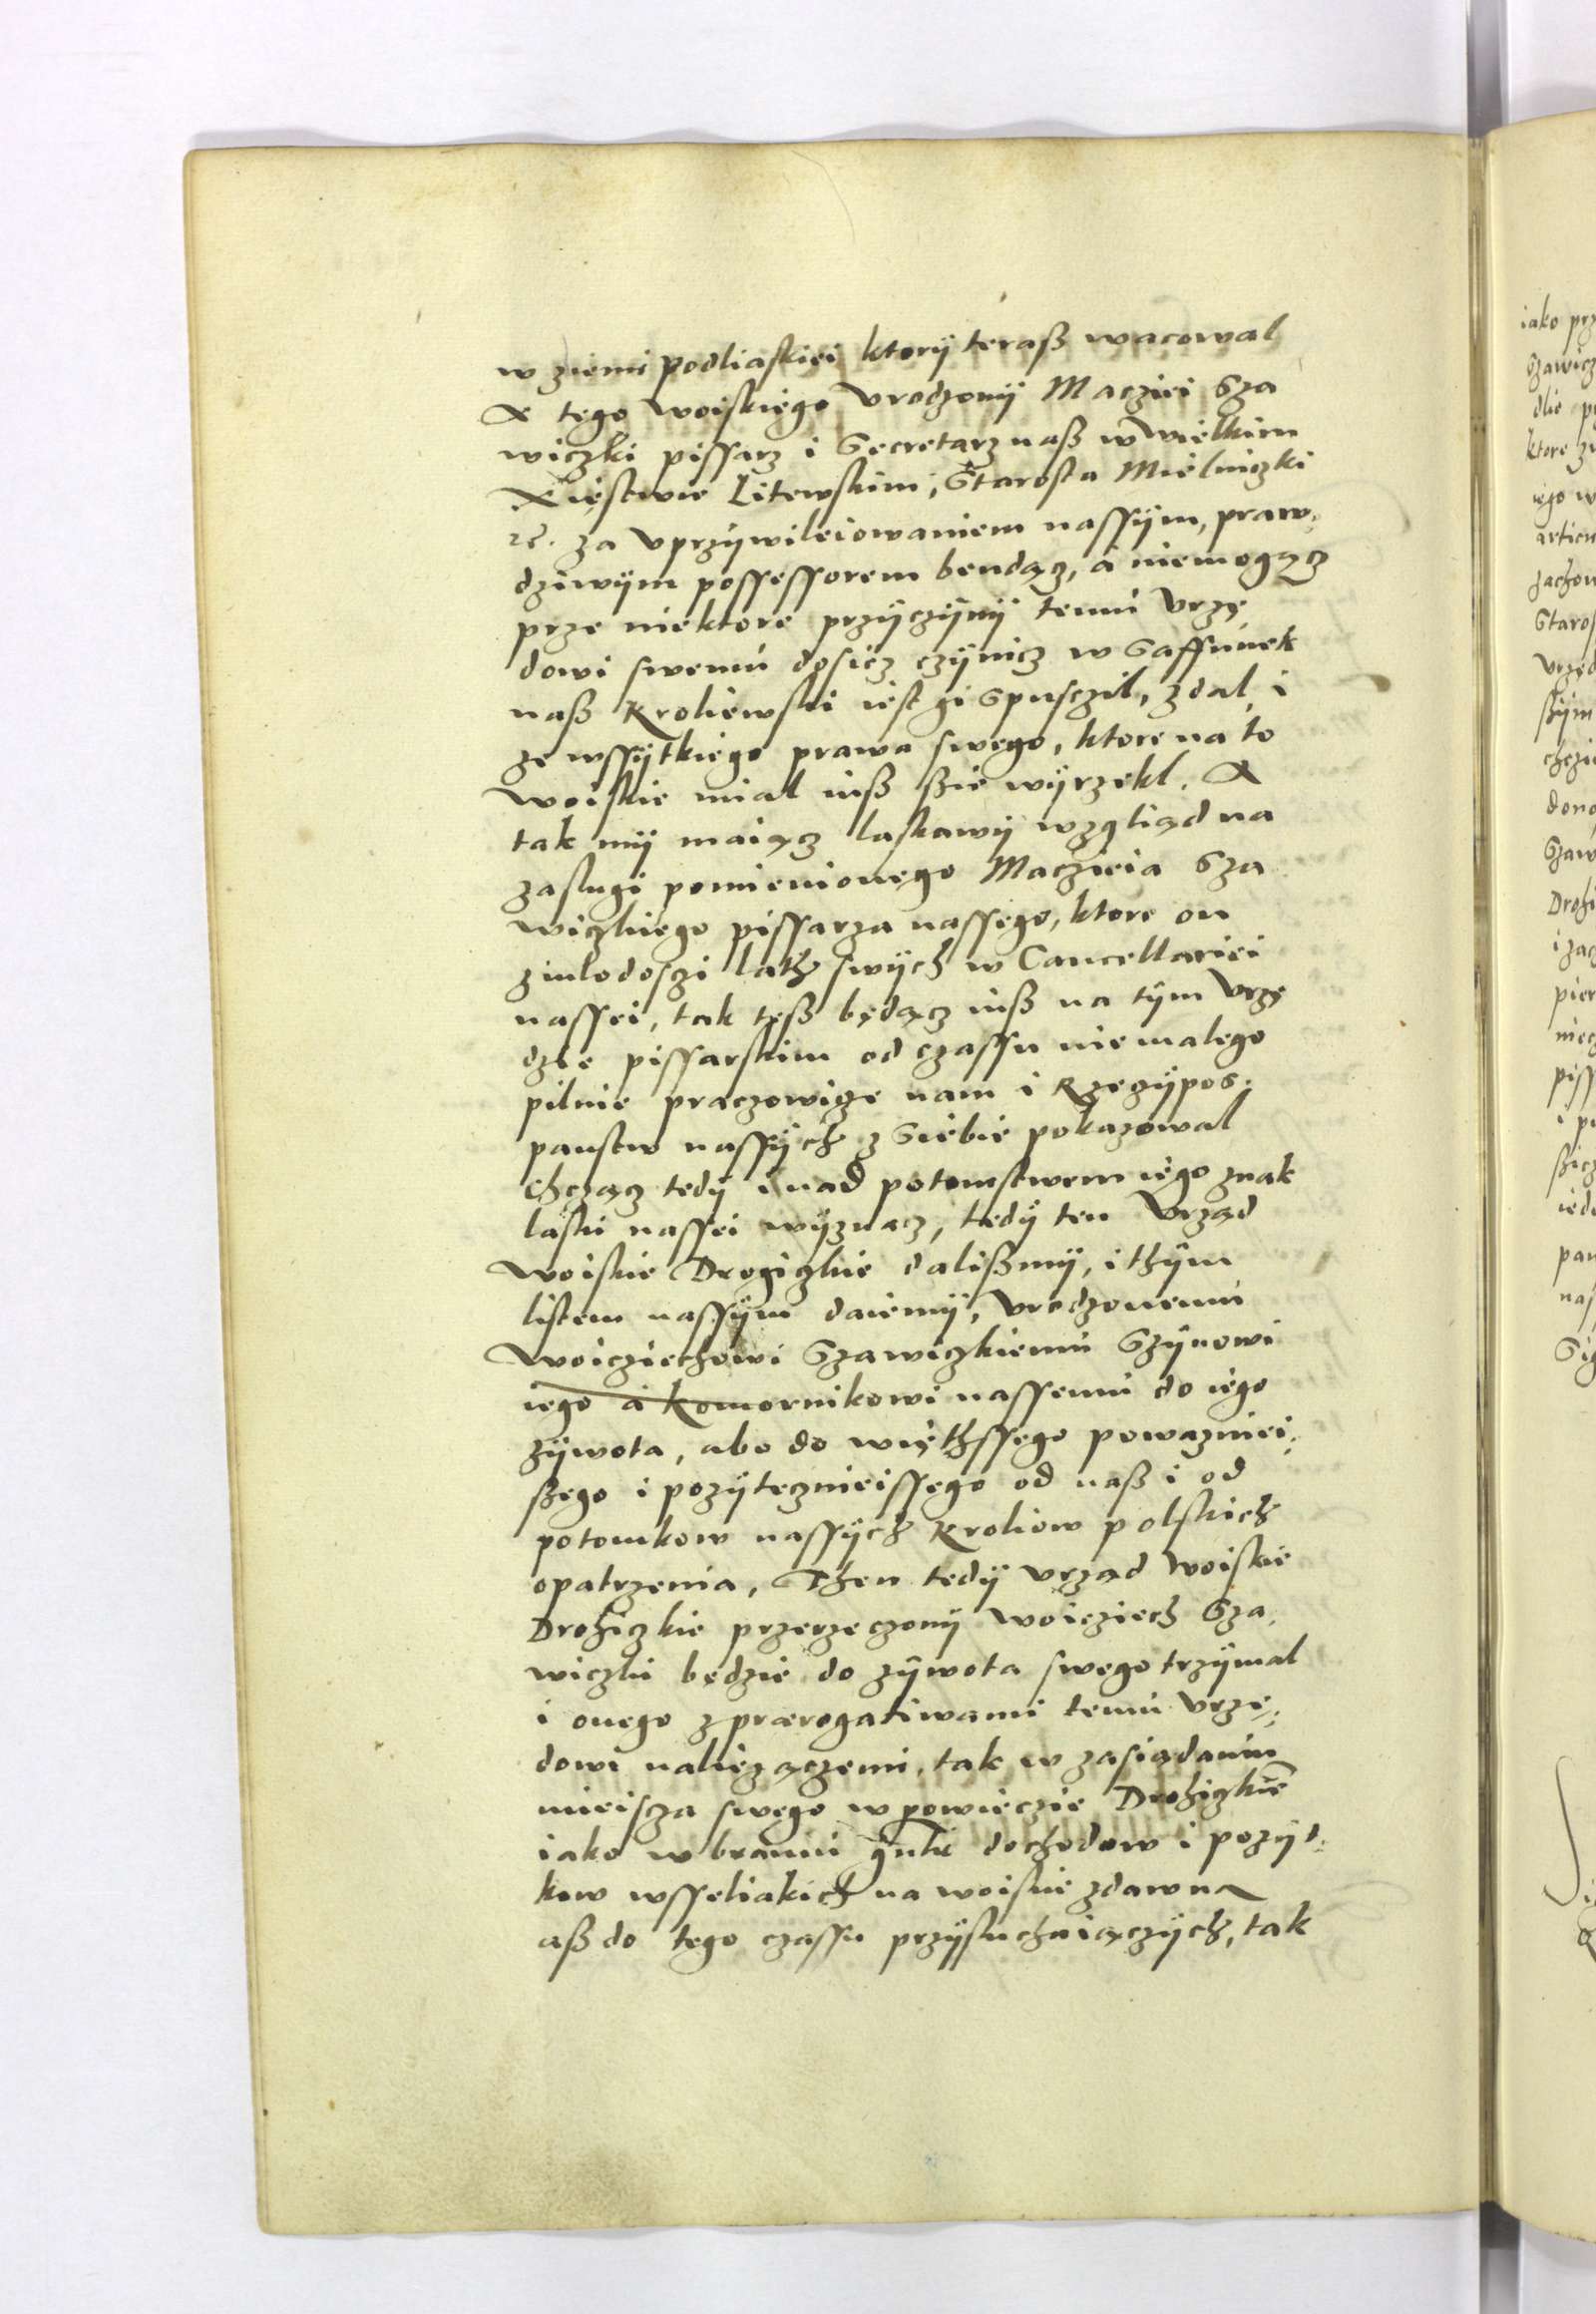 w ziemi podliaskiei ktory teraß wacowal
A tego woiskiego Vrodzony Macziei Sza
wiczki pissarz i Secretarz naß w wielkim
Xięstwie Litewskim, Starosta Mielniczki
za vprzywileiowaniem nassym, praw,
dziwym possessorem bendącz, a niemogącz
prze niektore przyczyny temu Vrzę
dowi swemu dosicz czynicz w Saffunek
naß Kroliewski iest gi Spusczil, zdal, i
ze wssytkiego prawa swego, ktore na to
Woiskie mial iuß ßie wyrzekl. A
tak my maiącz laskawy wzgliąd na
zaslugi pomienionego Maczieia Sza
wiczkiego pissarza nassego, ktore on
zmlodosczi lath swych w Cancellariei
nassei, tak teß będącz iuß na tym Vrzę
dzie pissarskim od czassu niemalego
pilnie praczowicze nam i Rzeczypos:
panstw nassych z Siebie pokazowal
chcząc tedy i nad potomstwem iego znak
laski nassei wyznacz, tedy ten Vrząd
Woiskie Drogiczkie dalißmy, i thym
listem nassym daiemy, Vrodzonemu
Woicziechowi Szawiczkiemu Szynowi
iego a Komornikowi nassemu do iego
zywota, abo do więthssego powazniei,
ßego i pozyteczneissego od naß i od
potomkow nassych Kroliow polskich
opatrzenia, Then tedy vrząd Woiskie
Drohiczkie przerzeczony Woicziech Sza,
wiczki będzie do zywota swego trzymal
i onego z praerogatiwami temu Vrzę,
dowi naliezączemi, tak w zasiądaniu
mieiscza swego w powieczie Drohiczkie
iako w braniu dochodow i pozyt,
kow wsseliakich na woiskie zdawna
aß do tego czassu przysluchaiączych, tak
iako prz
Szawicz
dlie po
ktore zu
iego w
articu
zachow
Staros
Vrzęd
ßym
chczie
dono
Szaw
Drohi
i zac
pier
niec
piss
i pr
ßicz
iedn
pan
nas
Sig